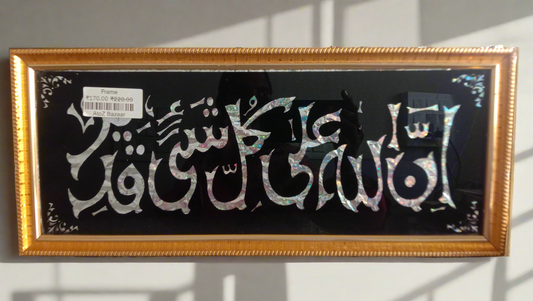 Frame
₹170.00 ₹220.00
AtoZ Bazaar
إن الله على كل شيء قدير